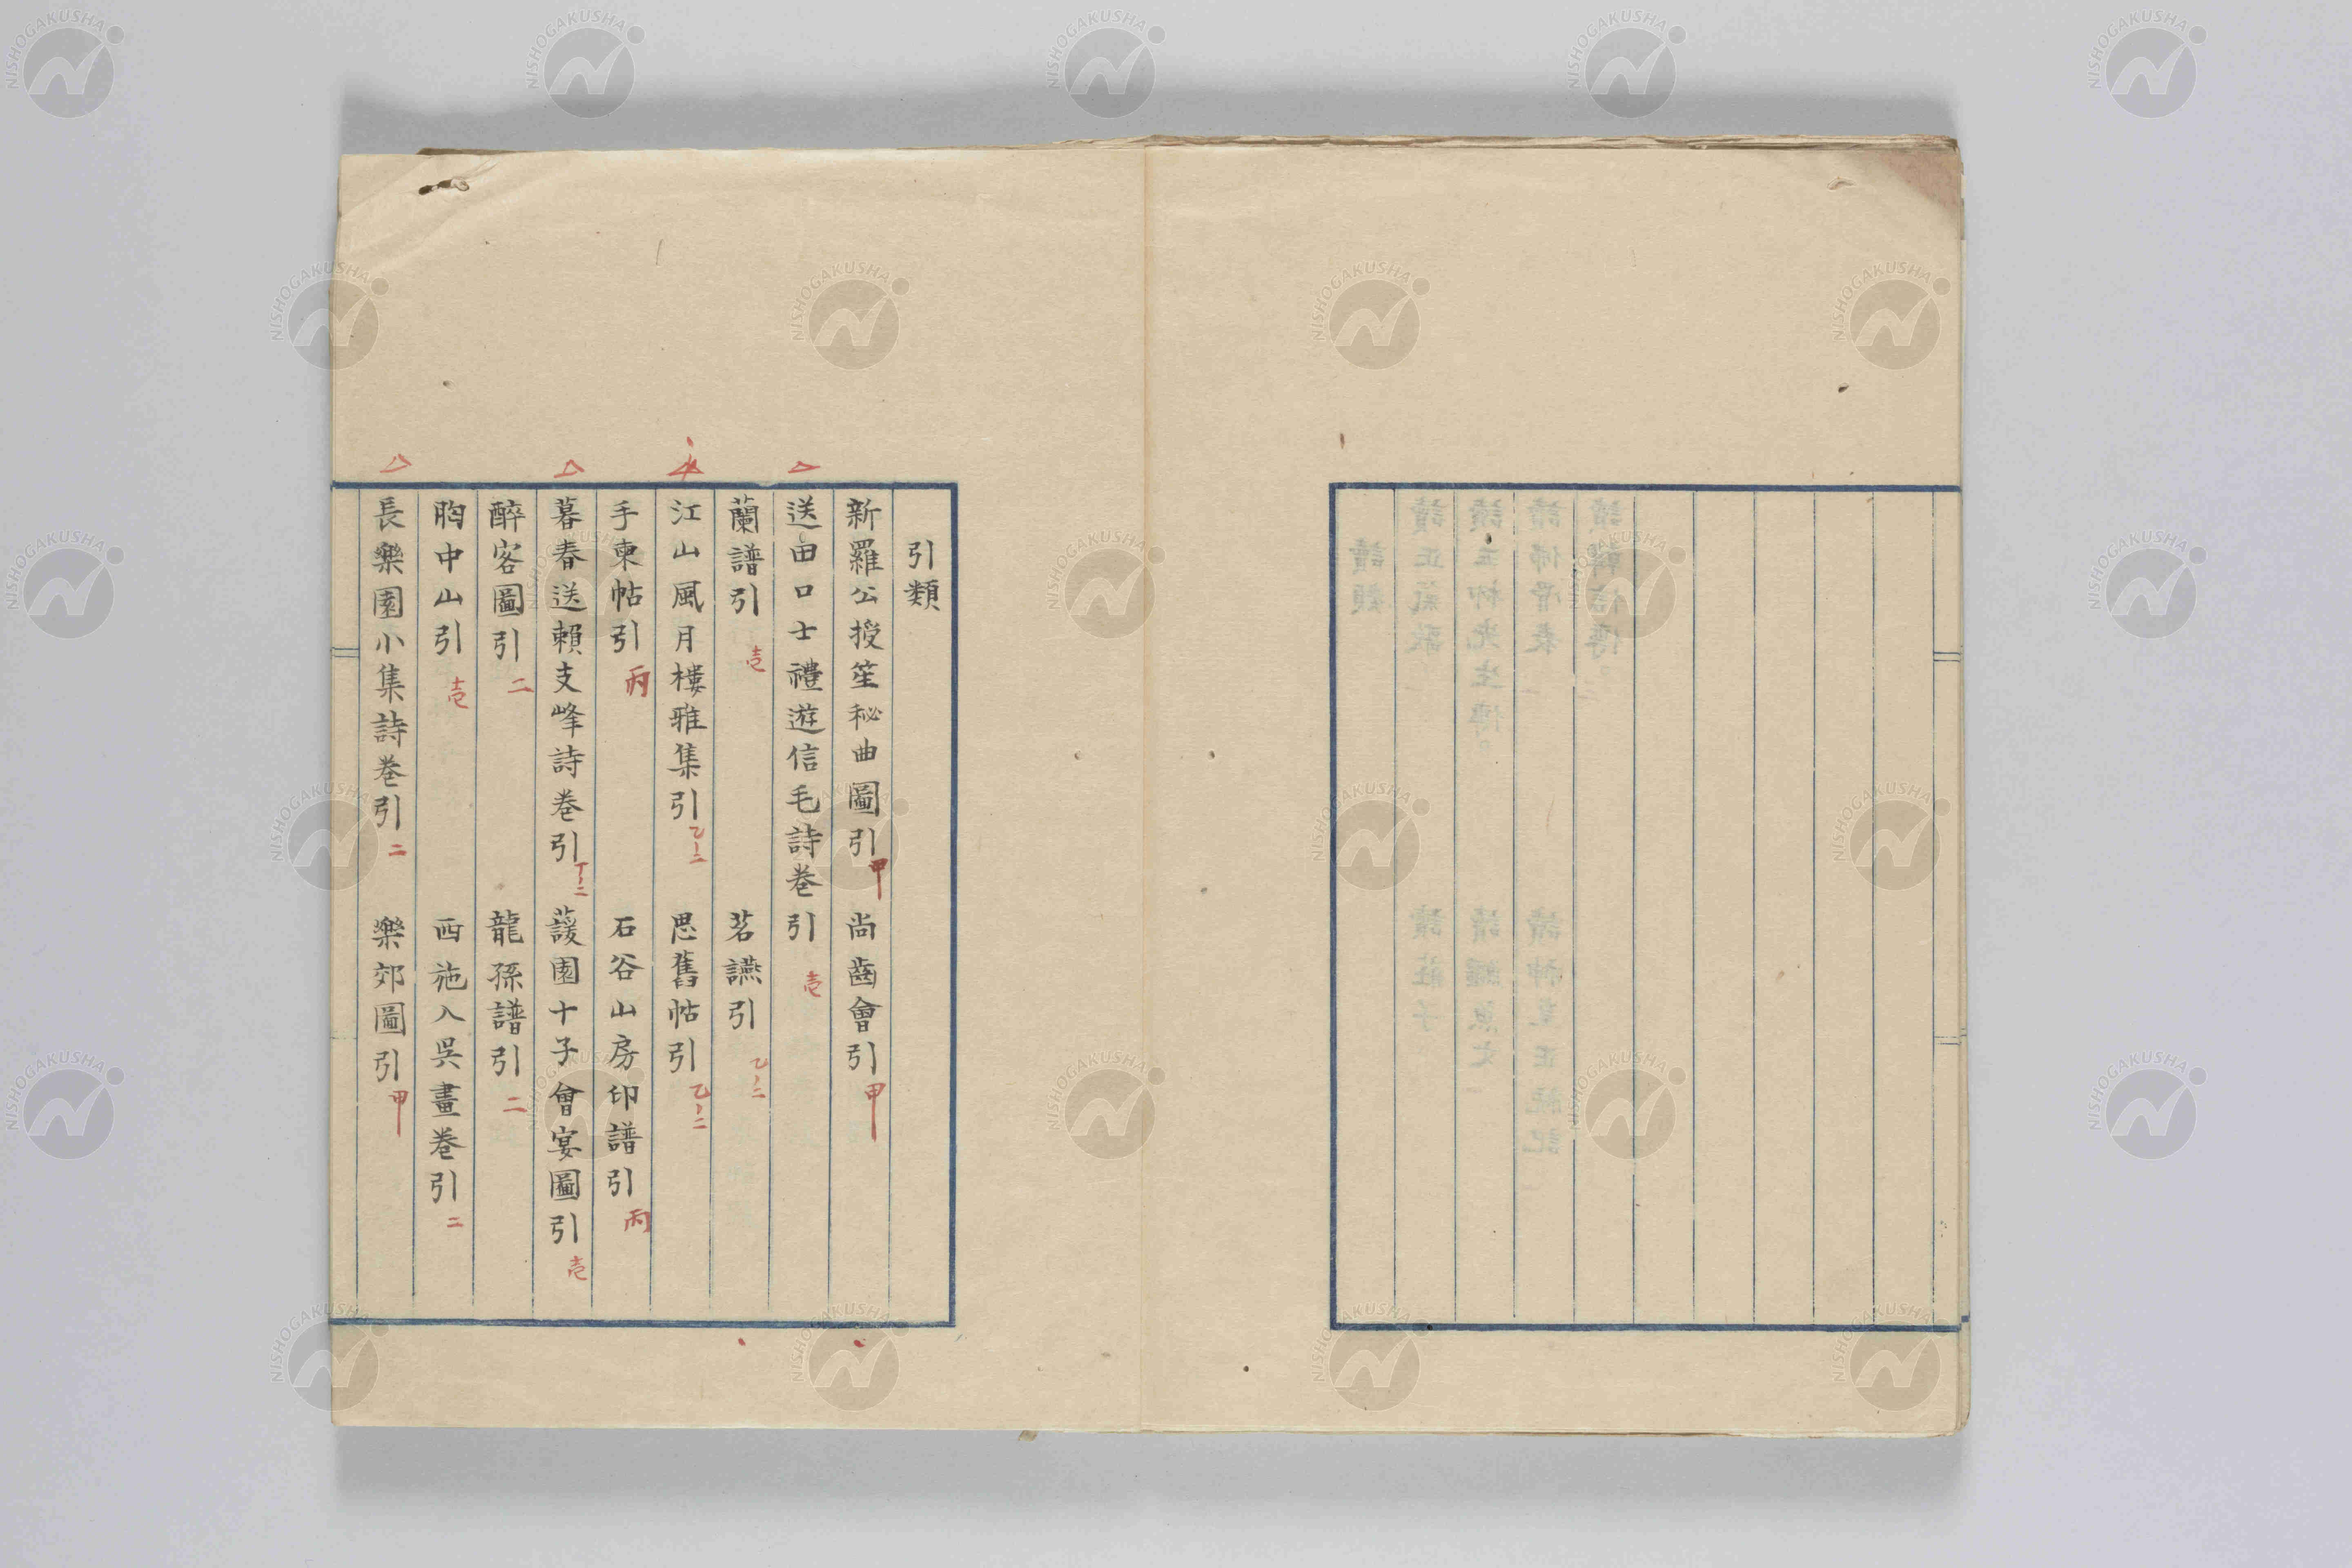 引類
新羅公授笙秘曲圖引 甲 尚齒會引 甲
送田口士禮遊信毛詩卷引 壱
蘭譜引 壱 茗讌引 乙ノ二
江山風月樓雅集引 乙ノ二 思舊帖引 乙ノ二
手柬帖引 丙 石谷山房印譜引 丙
暮春送賴支峰詩卷引 丁ノ二 蘐園十子會宴圖引 壱
醉客圖引 二 龍孫譜引 二
胸中山引 壱 西施入吳畫卷引 二
長樂園小集詩卷引 二 樂郊圖引 甲
NISHOGAKUSHA